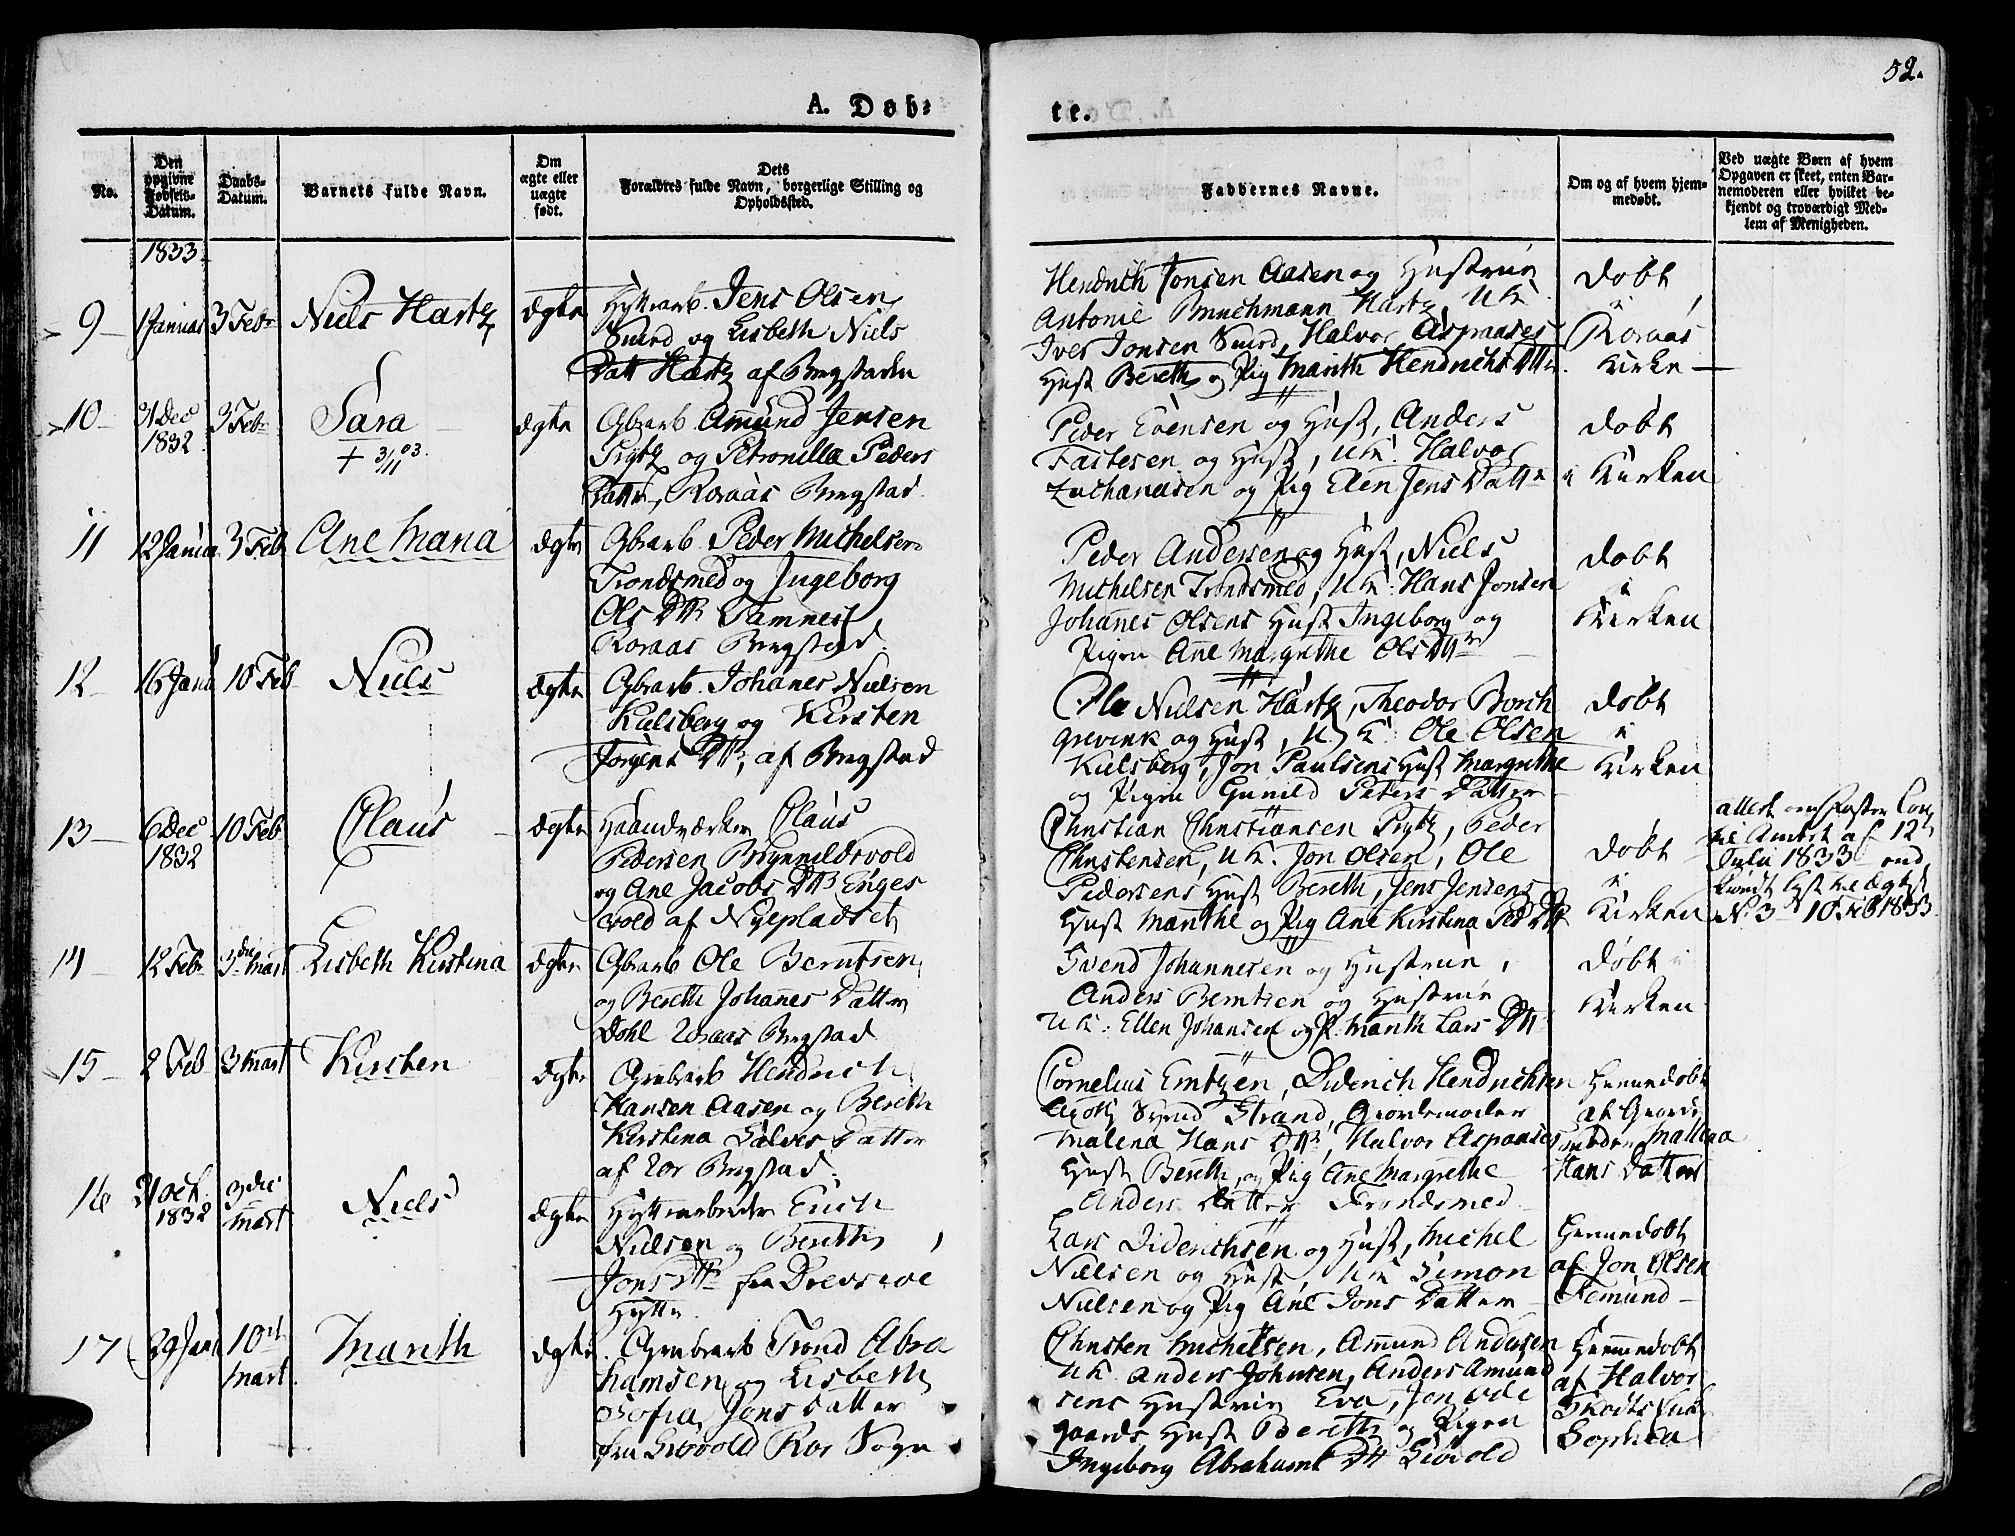 52.
A. Døb-
te.
No.
Den opgivne Fødsels-Datum.
Daabs-Datum.
Barnets fulde Navn.
Om ægte eller uægte født.
Dets Forældres fulde Navn, borgerlige Stilling og Opholdssted.
Faddernes Navne.
Om og af hvem hjemmedøbt.
Ved uægte Børn af hvem Opgaven er skeet, enten Barnemoderen eller hvilket bekjendt og troværdigt Medlem af Menigheden.
1833
9 1 Januar 3 Febr Niels Hartz ægte
Hyttearb. Jens Olsen
Smed og Lisbeth Niels
Datt Hartz af Bergstaden
Hendrich Jonsen Aasen og Hustrue
Antonie Hartz U K
Iver Jonsen Smed, Halvor Aspaases
Hust Bereth og Pig Marith Hendrichs Dtr.
døbt
i
Roraas
Kirke
10 31 Dec 1832 3 Febr Sara ægte
+ 3/11 03.
Gbrarb Amund Jensen
Prytz og Petronilla Peders
Datter, Roraas Bergstad
Peder Evensen og Hust, Anders
Fastesen og Hust, U K. Halvor
Zachariasen og Pig Elen Jens Datter
døbt
i Kirken
11 12 Janua 3 Feb Ane Maria ægte
Gbrarb Peder Michelsen
Trondsmed og Ingeborg
Ols Dtr Tamnes
Roraas Bergstad
Peder Andersen og Hust, Niels
Michelsen Trondsmed, U K: Hans Jonsen
Johanes Olsens Hust Ingeborg og
Pigen Ane Margrethe Ols Dtr
døbt
i
Kirken
12 16 Janu 10 Feb Niels ægte
Gbrarb Johanes Nielsen
Kulsberg og Kirsten
Jørgens Dtr, af Bergstad
Ole Nielsen Hartz, Theodor Borch
grevink og Hust, U K: Ole Olsen
Kulsberg, Jon Paulsens Hust Margrethe
og Pigen Gunild Peders Datter
døbt
i
Kirken
13 6 Dec 1832 10 Feb Claus ægte
Haandværker Claus
Pedersen Brynnildsvold
og Ane Jacobs Dtr Enges
vold af Nyepladset
Christian Christiansen Prytz, Peder
Christensen, U K. Jon Olsen, Ole
Pedersens Hust Bereth, Jens Jensens
Hust Marithe og Pig Ane Kirstina Ped Dtr
døbt
i
Kirken
til Amtet af 12
Julii 1833
No 3 10 Feb 1833
14 12 Febr 3die Mart Lisbeth Kirstina ægte
Gbrarb Ole Berntsen
og Bereth Johanes Datter
Dohl Roraas Bergstad
Svend Johannesen og Hustrue,
Anders Berntsen og Hustrue
U K: Ellen Johansen og P. Marith Lars Dtr
døbt i
Kirken
15 2 Feb 3 Mart Kirsten ægte
Grubearb Hendrich
Hansen Aasen og Bereth
Kirstina Halvors Datter
af Ror Bergstad.
Cornelius Emtzen, Diderich Hendrichsen
Strand, Giordemoder
Malena Hans Dtr, Halvor Aspaases
Hust Bereth, og Pig Ane Margrethe
Anders Datter Trondsmed
Hiemmedøbt
af Giorde
moder Mallena
Hans Datter
16 31 Oct. 1832 3die Mart Niels ægte
Hyttearbeider Erich
Nielsen og Bereth
Jons Dtr fra Drevsiøe
Hytte
Lars Diderichsen og Hust, Michel
Nielsen og Hust, U K Simon
Nielsen og Pig Ane Jons Datter
Hiemmedøbt
af Jon Olsen
Femund
17 29 Janu 10de Mart Marith ægte
Grubearb Trond Abra
hamsen og Lisbeth
Sofia Jons Datter
fra Siøvold Ror Sogn
Christen Michelsen, Amund Andersen
U K Anders Johnsen, Anders Amund
sens Hustrue Eva, Jon Ode
gaards Hust Bereth og Pigen
Ingeborg Abrahams Dtr Siøvold
Hiemmedøbt
af Halvor
Sophia